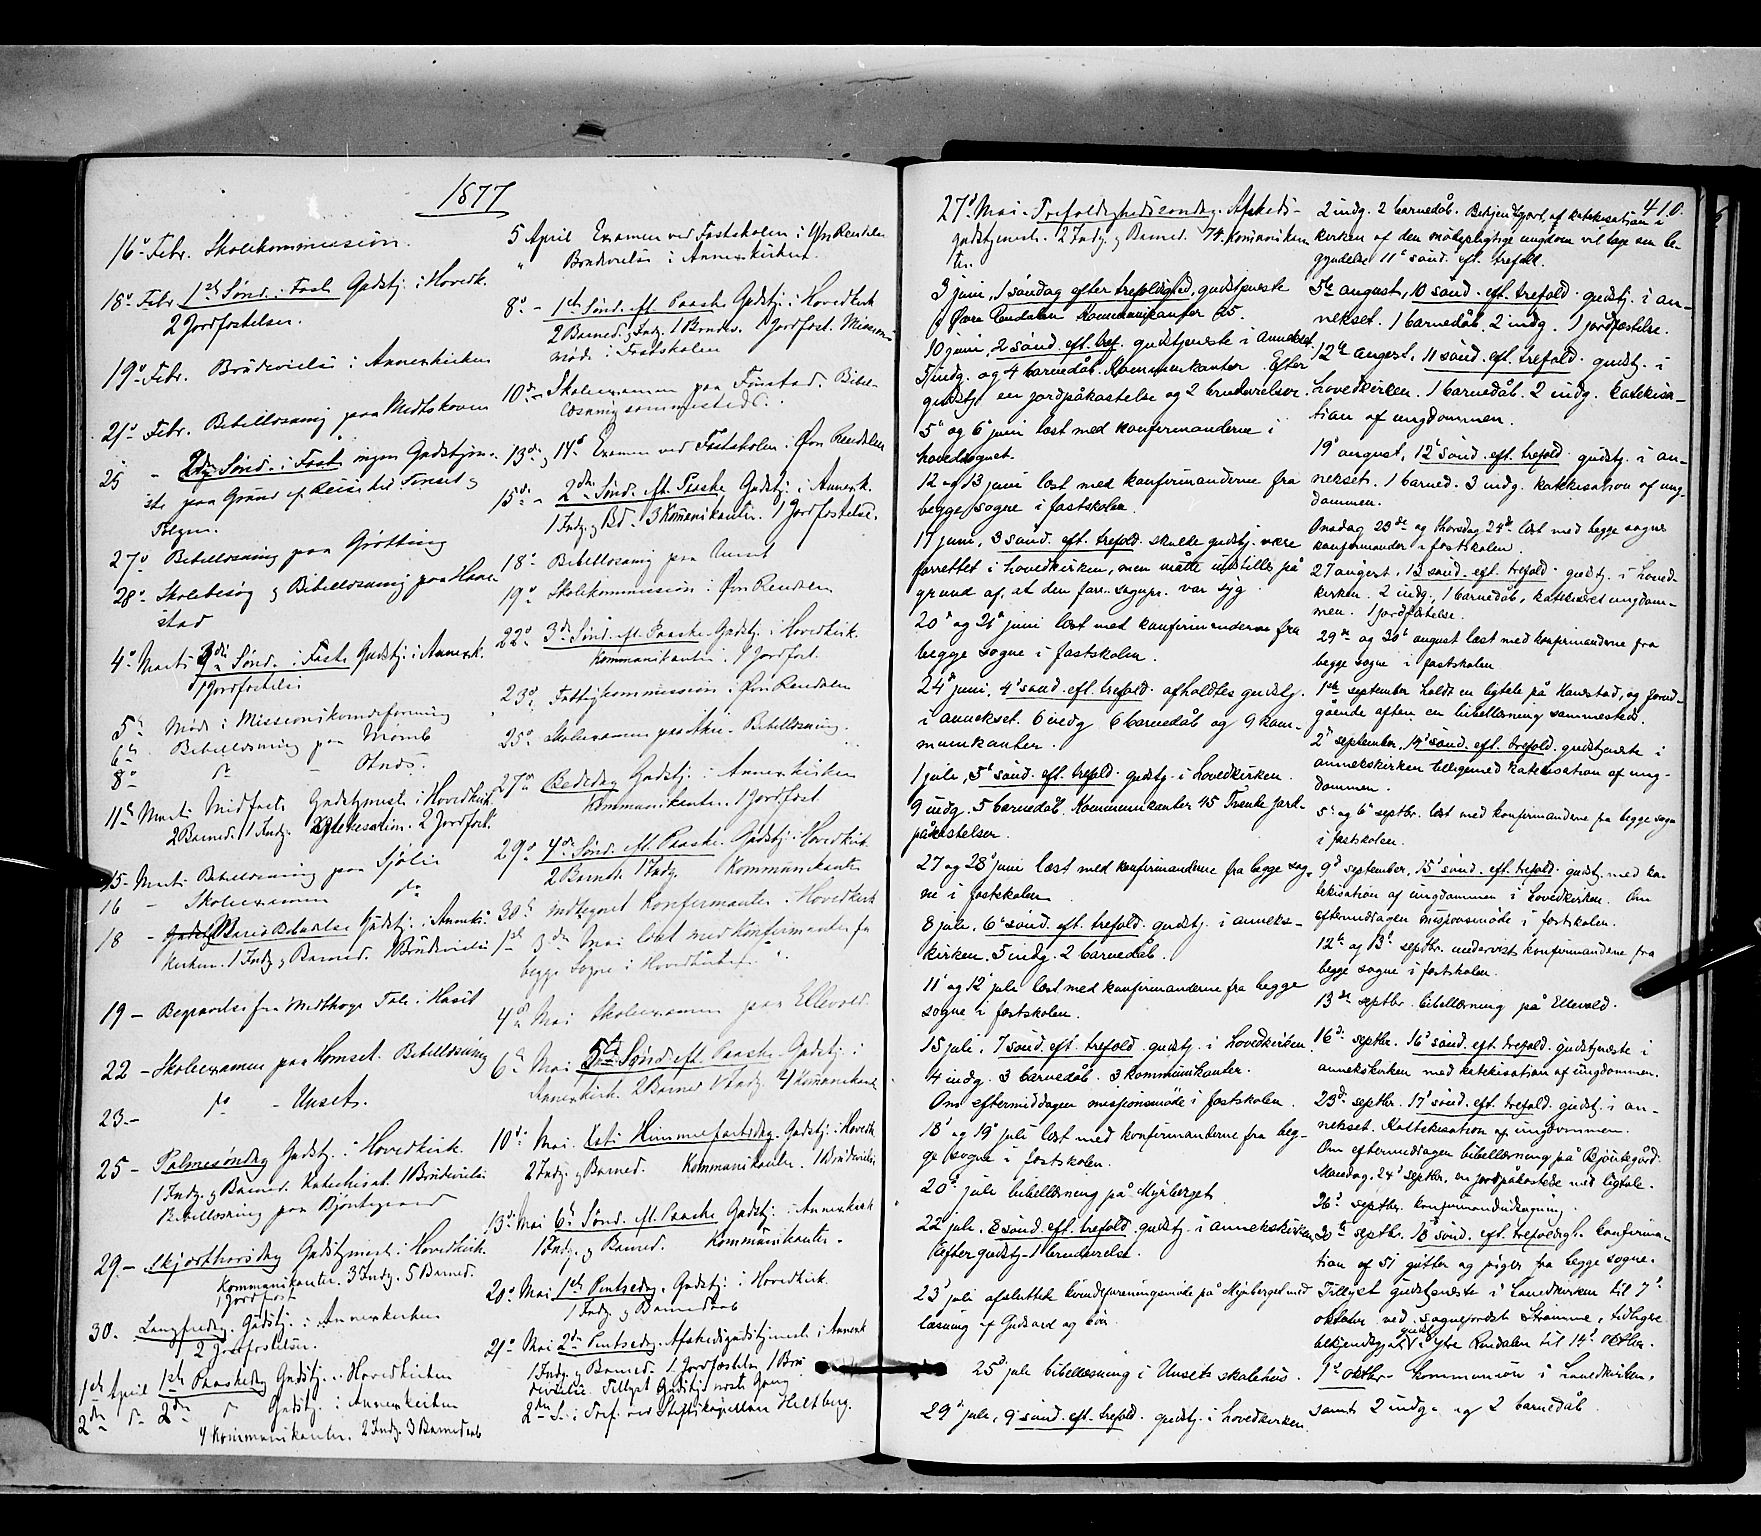 1877
16de Febr. Skolekommission.
18de Febr 1ste Sønd. i Faste Gudstj. i Hovedk.
2 Jordfæstelser.
19de Febr. Brudevielse i Annexkirken
21de Febr. Bibellæsning paa Midtskoven
25 - 2den Sønd. i Faste ingen Gudstjene-
ste paa Grund af Reise til
27de Bibellæsning paa Grøtting
28de Skolebesøg og Bibellæsning paa Haan-
stad
4de Marts 3die Sønd. i Faste Gudstj. i Annexk.
1 Jordfæstelse
5te Møde i Missionskvindeforening
6te Bibellæsning paa
8de do - Otnes.
11te Marts Midfaste Gudstjeneste i Hovedkirk.
2 Barned. 1 Indg. Katekisation. 2 Jordfæst.
15 - Marts Bibellæsning paa Sjøli
16 - Skoleexamen do
18 - Mariæ Bebudelse Gudstj. i Annex-
kirken. 1 Indg. og Barned. 1 Brudevielse
19 - Begravelse fra
22 - Skoleexamen paa Homset. Bibellæsning
23. - do - Unset.
25 - Palmesøndag Gudstj. i Hovedkirk.
1 Indg. og Barned. Katechisat. 1 Brudevielse
Bibellæsning paa Bjøntegaard
29. - Skjærthorsdag Gudstjenest. i Hovedkirk.
Kommunikanter. 3 Indg. 5 Barned.
1 Jordfæst
30. Langfredag. Gudstj. i Annexkirken
2 Jordfæstelser.
1ste April 1ste Paaskedag Gudstj. i Hovedkirken
2den do 2den do Gudstj. i Annexkirken
4 Kommunikanter. 2 Indg. 3 Barnedaab
5 April Examen ved Fastskolen i Øvre Rendalen
" Brudevielse i Annexkirken.
8de - 1ste Sønd. eft. Paaske Gudstj. i Hovedkirk
2 Barned. Indg. 1 Brudev. 1 Jordfæst. Missions-
møde i Fastskolen
10de - Skoleexamen paa Fonstad. Bibel-
læsning sammesteds.
13de og 14de Examen ved Fastskolen i Øvre Rendalen
15de - 2den Sønd. eft. Paaske Gudstj. i Annexk.
1 Indg. og Bd. 3 Kommunikanter. 1 Jordfæstelse.
18de Bibellæsning paa Unset
19de Skolekommission i Øvre Rendalen
22de 3die Sønd. eft. Paaske Gudstj. i Hovedkirk.
Kommunikanter. 1 Jordfæst.
23de Fattigkommission i Øvre Rendalen
25de Skoleexamen paa Akre. Bibellæsning.
27de Bededag Gudstj. i Annexkirken
Kommunikanter. 1 Jordfæst.
29de 4de Sønd. eft. Paaske. Gudstj. i Hovedkirk.
2 Barned. 1 Indg. Kommunikanter
30te indtegnet Konfirmanter i Hovedkirk
1ste - 3die Mai læst med Konfirmanter fra
begge Sogne i Hovedkirken.
4de Mai Skoleexamen paa Ellevold.
6te Mai 5te Sønd. eft. Paaske. Gudstj. i
Annexkirk. 2 Barned 1 Indg. 4 Kommunikant.
10de Mai. Kristi Himmelfartsdag. Gudstj. i Hovedk.
2 Indg. og Barned. Kommunikanter. 1 Brudevielse
13de Mai 6te Sønd. eft. Paaske Gudstj. i Annexkirk
1 Indg. og Barned. Kommunikanter -
20de Mai 1ste Pintsedag. Gudstj. i Hovedkirk.
1 Indg. og Barnedaab
21de Mai 2den Pintsedag. Afskedsgudstjeneste i Annexk
1 Indg. og Barned. 1 Jordfæstelse. 1 Bru-
devielse. Tillyst Gudstj. næste Gang
2den S. i Tref. ved Stiftskapellan Heltberg.
27de Mai. Trefoldighedssøndag. Afskeds-
gudstjenest. 2 Indg. og Barned. 74 Kommunikan-
ter.
3 juni, 1 søndag efter trefoldighed, gudstjeneste
i Øvre Rendalen Kommunikanter 65.
10 juni, 2 sønd. eft. tref. gudstjeneste i annekset
5 indg. og 4 barnedåb. Kommunikanter Efter
gudstj. en jordpåkastelse og 2 brudevielser
5te og 6te juni læst med konfirmanderne i
hovedsognet.
12 og 13 juni læst med konfirmanderne fra
begge sogne i fastskolen.
17 juni, 3 sønd. eft. trefold. skulde gudstj. være
forrettet i hovedkirken, men måtte indstilles på
grund af, at den fun. sognpr. var syg.
20de og 26de juni læst med konfirmanderne fra
begge sogne i fastskolen.
24de juni, 4de sønd. eft. trefold. afholdtes gudstj.
i annekset. 6 indg 6 barnedåb og 9 kom-
munikanter.
1 juli, 5te sønd. eft. trefold. gudstj. i hovedkirken.
9 indg. 5 barnedåb. Kommunikanter 45 Trende jord-
påkastelser.
27 og 28de juni læst med konfirmanderne fra begge sog-
ne i fastskolen
8 juli, 6te sønd. eft. trefold. gudstj. i anneks-
kirken. 5 indg. 2 barnedåb.
11te og 12te juli læst med konfirmanderne fra begge
sogne i fastskolen.
15 juli, 7 sønd. eft. trefold. gudstj. i hovedkirken.
4 indg. 3 barnedåb. 3 kommunikanter.
Om eftermiddagen missionsmøde i fastskolen.
18de og 19de juli læst med konfirmanderne fra beg-
ge sogne i fastskolen.
20de juli bibellæsning på Myrberget.
22 juli, 8 sønd. eft. trefold. gudstj. i annekskirken
Efter gudstj. 1 brudevielse.
23de juli afsluttede kvindeforeningsmøde på Myrberget med
læsning af Guds ord og bøn
25de juli bibellæsning i Unsets skolehus.
29de juli, 9 sønd. eft. trefold. gudstj. i hovedkirken
410.
2 indg. 2 barnedåb. Bekjendtgjort, at katekisation i
kirken af den mødepligtige ungdom vil tage sin be-
gyndelse 11te sønd. eft. trefold.
5te august, 10 sønd. eft. trefold. gudstj. i an-
nekset. 1 barnedåb. 2 indg. 1 jordfæstelse.
12te august, 11 sønd. eft. trefold. gudstj. i
hovedkirken. 1 barnedåb. 2 indg. Katekisa-
tion af ungdommen.
19de august, 12te sønd. eft. trefold. gudstj. i an-
nekset. 1 barned. 3 indg. katekisation af ung-
dommen.
Onsdag 23de og thorsdag 24de læst med begge sogne
konfirmander i fastskolen.
27 august, 13 sønd. eft. trefold. gudstj. i hoved-
kirken. 2 indg., 1 barnedåb, katekiseret ungdom-
men. 1 jordfæstelse.
29de og 30te august læst med konfirmanderne fra
begge sogne i fastskolen
1ste september holdt en ligtale på Hanestad, og forud-
gående aften en bibellæsning sammesteds.
2den september, 14de sønd. eft. trefold. gudstjeneste i
annekskirken tilligemed katekisation af ung-
dommen.
5te og 6te septbr. læst med konfirmanderne fra begge sogne
i fastskolen.
9de september, 15de sønd. eft. trefold. gudstj. med ka-
tekisation af ungdommen i hovedkirken. Om
eftermiddagen missionsmøde i fastskolen.
12te og 13de septbr. undervist konfirmanderne fra
begge sogne i fastskolen.
13de septbr. bibellæsning på Ellevold.
16de septbr. 16de sønd. eft. trefold. gudstjeneste i
annekskirken med katekisation af ungdommen.
23de septbr. 17de sønd. eft. trefold. gudstj. i an-
nekset. Kattekisation af ungdommen.
Om eftermiddagen bibellæsning på Bjøntegård.
Mandag 24de septbr. en jordpåkastelse med ligtale.
26de septbr. konfirmandudsøgning.
30te septbr. 18de sønd. eft. trefoldigh. konfirma-
tion af 51 gutter og piger fra begge sogne.
Tillyst gudstjeneste i hovedkirken til 7de
oktober ved sogneprest Strømme, tidligere
bekjendtgjort gudstj. i Ytre Rendalen til 14de oktbr.
1ste oktbr. kommunion i hovedkirken,
samt 2 indg. og 2 barnedåb.